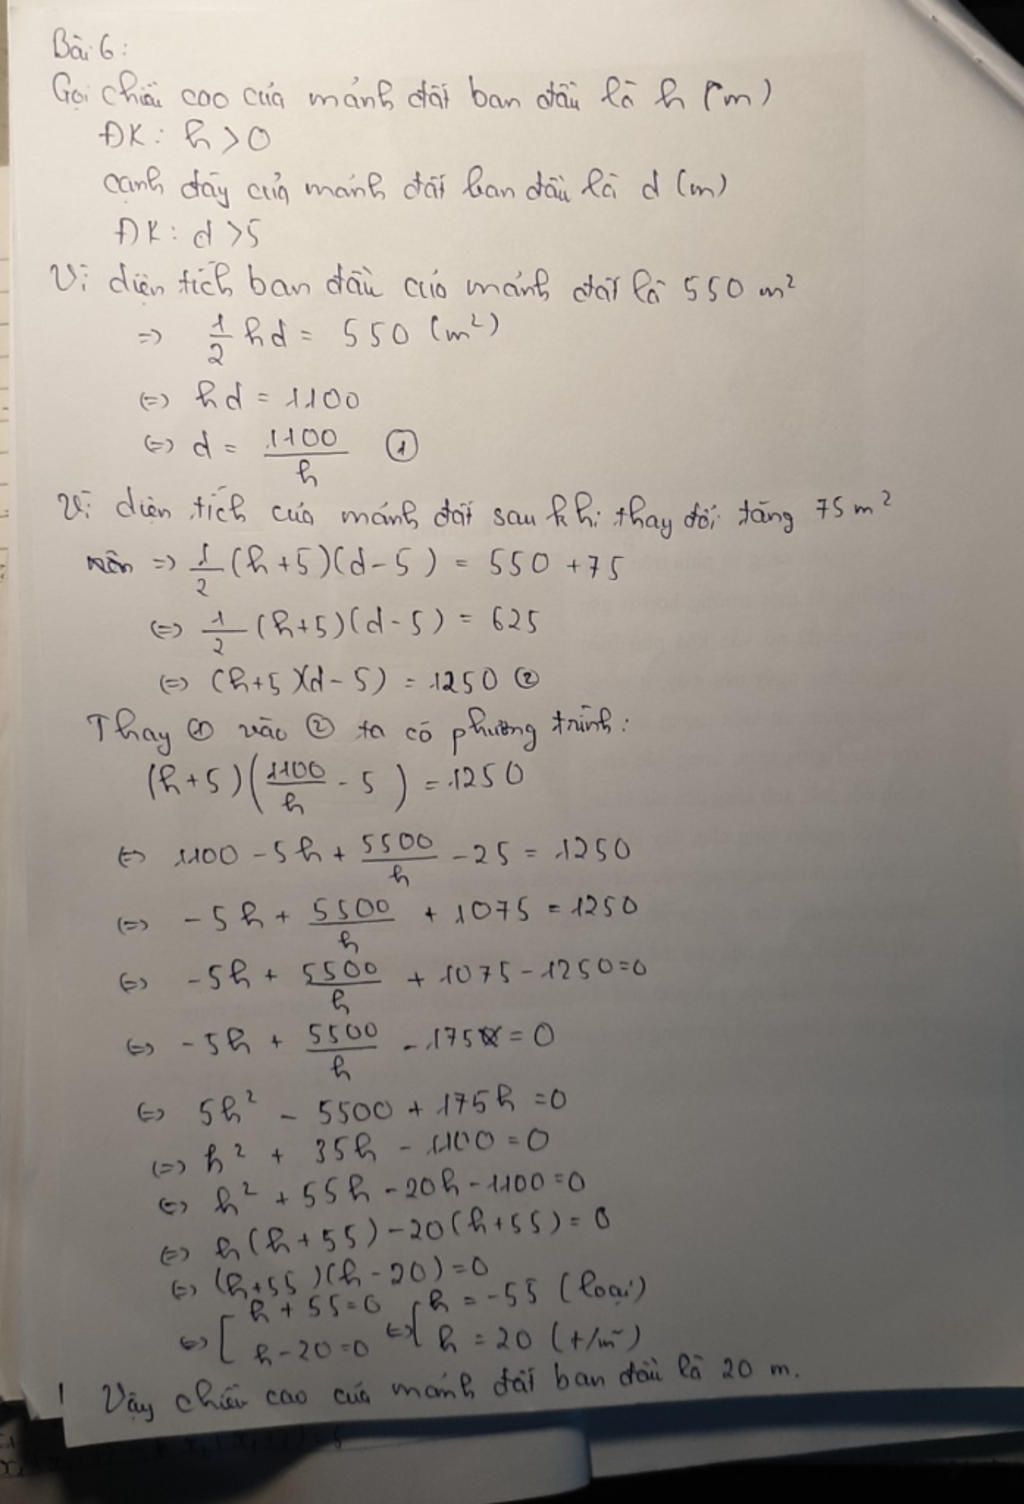 Bài 6:
Gọi chiều cao của mảnh đất ban đầu là h (m)
ĐK: h > 0
cạnh đáy của mảnh đất ban đầu là d (m)
ĐK: d > 5
Vì diện tích ban đầu của mảnh đất là 550 m²
=> 1/2 hd = 550 (m²)
<=> hd = 1100
<=> d = 1100/h ①
Vì diện tích của mảnh đất sau khi thay đổi tăng 75 m²
nên => 1/2 (h+5)(d-5) = 550 + 75
<=> 1/2 (h+5)(d-5) = 625
<=> (h+5)(d-5) = 1250 ②
Thay ① vào ② ta có phương trình:
(h+5)(1100/h - 5) = 1250
<=> 1100 - 5h + 5500/h - 25 = 1250
<=> -5h + 5500/h + 1075 = 1250
<=> -5h + 5500/h + 1075 - 1250 = 0
<=> -5h + 5500/h - 175 = 0
<=> 5h² - 5500 + 175h = 0
<=> h² + 35h - 1100 = 0
<=> h² + 55h - 20h - 1100 = 0
<=> h(h+55) - 20(h+55) = 0
<=> (h+55)(h-20) = 0
<=> [ h + 55 = 0 <=> [ h = -55 (loại)
h - 20 = 0 h = 20 (t/m)
Vậy chiều cao của mảnh đất ban đầu là 20 m.